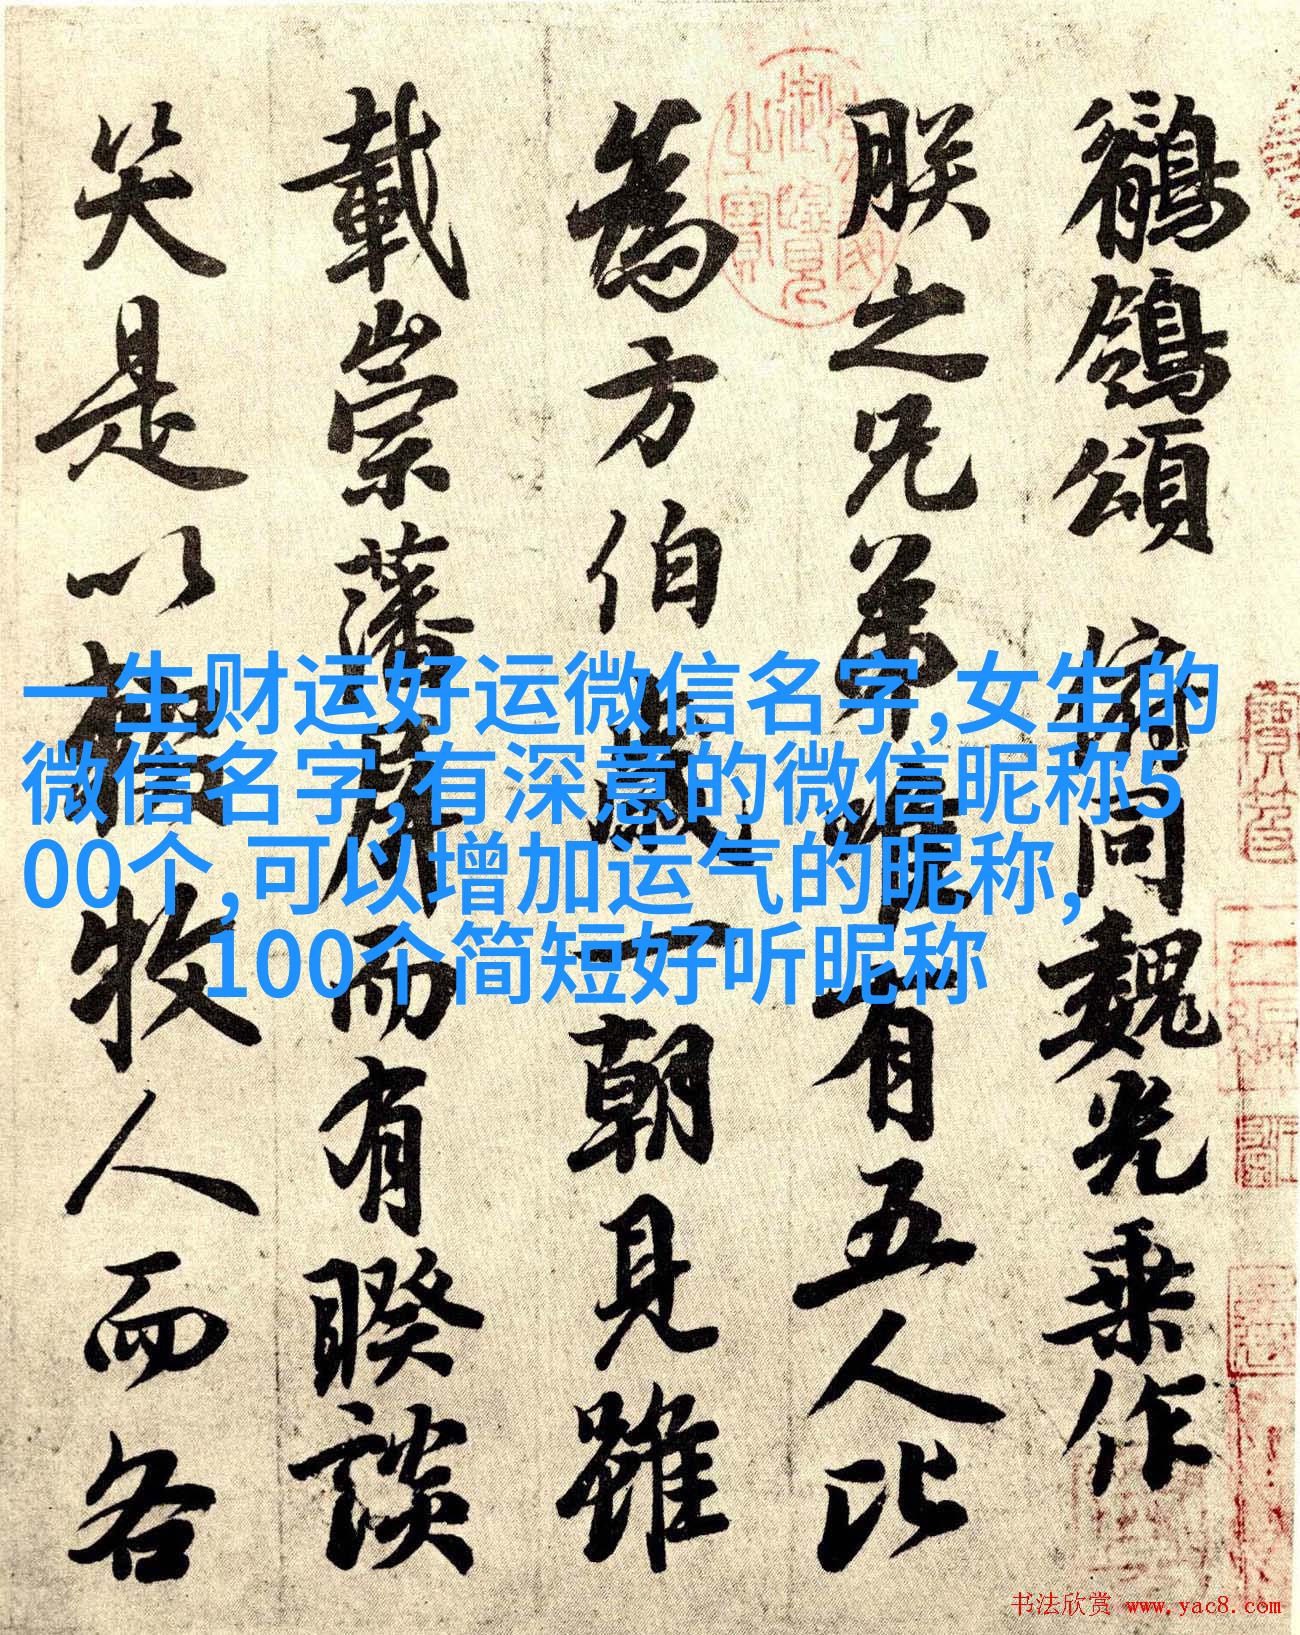 鶺鴒頌 俯同魏光乘作
朕之兄弟唯有五人比
為方伯歲一朝見雖
載崇藩屏而有睽談
笑是以輟牧人而各
一生财运好运微信名字,女生的
微信名字,有深意的微信昵称5
00个,可以增加运气的昵称,
100个简短好听昵称
书法欣赏 www.yac8.com